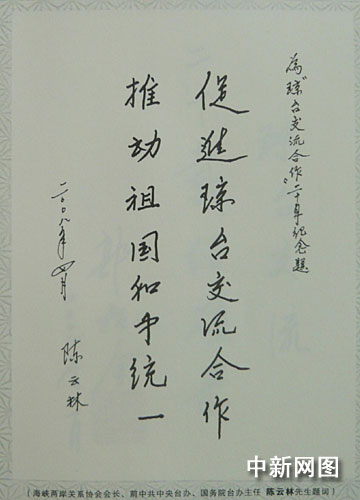 为“琼台交流合作”二十年纪念题
促进琼台交流合作
推动祖国和平统一
二〇〇八年四月
陈云林
(海峡两岸关系协会会长、前中共中央台办、国务院台办主任 陈云林先生题词)
中新网图